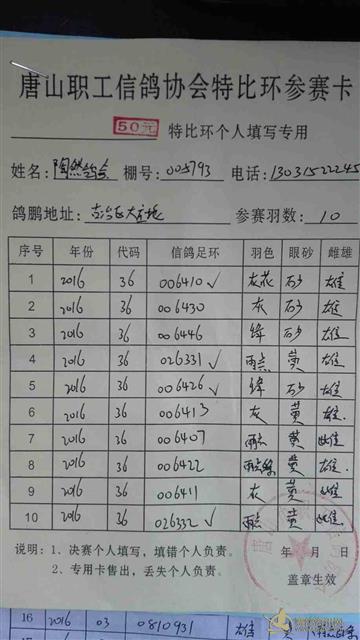 唐山职工信鸽协会特比环参赛卡
50元 特比环个人填写专用
姓名：陶然鸽舍 棚号：005793 电话：13031522245
鸽鹏地址： 参赛羽数：10
序号 年份 代码 信鸽足环 羽色 眼砂 雌雄
1 2016 36 006410 ✓ 灰花 砂 雄
2 2016 36 006430 灰 砂 雄
3 2016 36 006446 绛 砂 雄
4 2016 36 026331 ✓ 雨点 黄 雄
5 2016 36 006426 ✓ 绛 砂 雄
6 2016 36 006413 灰 黄 雄
7 2016 36 006407 雨点 黄 雌
8 2016 36 006422 黄 雄
9 2016 36 006411 灰 黄 雌
10 2016 36 026332 ✓ 雨点 黄 雌
说明：1、决赛个人填写，填错个人负责。 年 月 日
2、专用卡售出，丢失个人负责。 盖章生效
16 2016 03 0810931 雄 黄